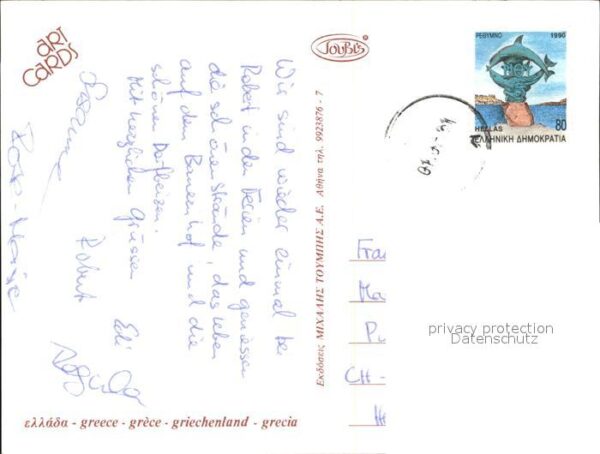 ART
CARDS
Joubis
ΡΕΘΥΜΝΟ 1990
HELLAS 80
ΕΛΛΗΝΙΚΗ ΔΗΜΟΚΡΑΤΙΑ
Wir sind wieder einmal bei
Robert in den Ferien und geniessen
die schönen Strände, das Leben
auf dem Bauernhof und die
schönen
Mit herzlichen Grüssen
Edi
Robert
Εκδόσεις ΜΙΧΑΛΗΣ ΤΟΥΜΠΗΣ Α.Ε. Αθήνα τηλ. 9923876 - 7
CH -
privacy protection
Datenschutz
ελλάδα - greece - grèce - griechenland - grecia